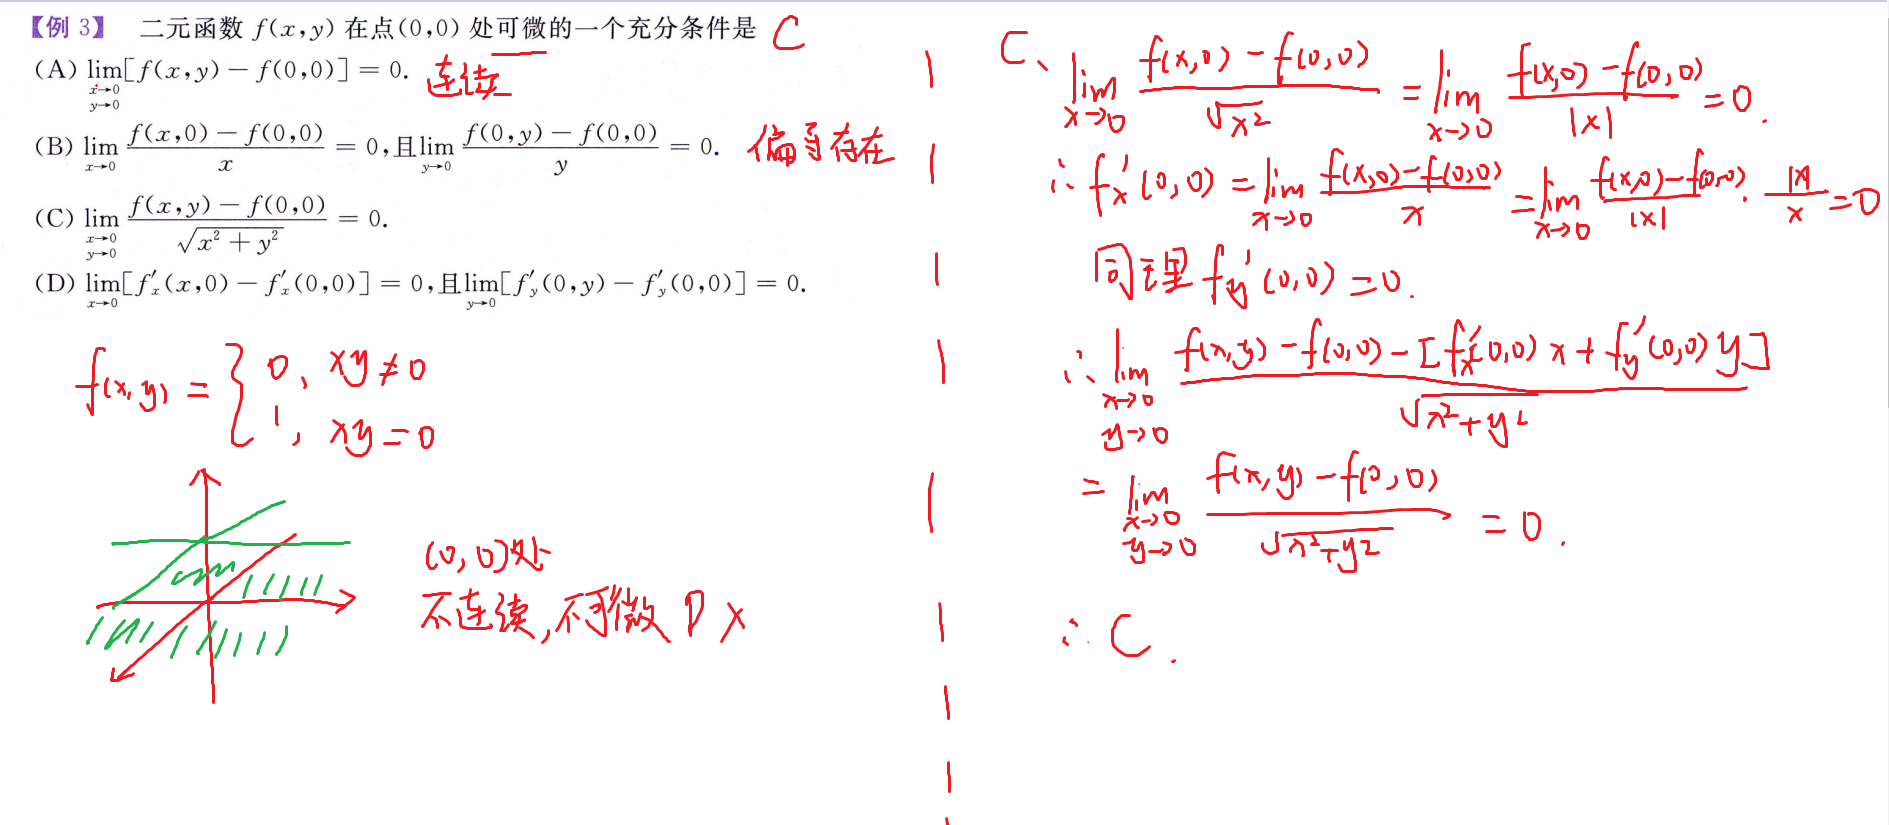 【例 3】 二元函数 f(x,y) 在点(0,0) 处可微的一个充分条件是 C
(A) lim_{x→0, y→0} [f(x,y) − f(0,0)] = 0. 连续
(B) lim_{x→0} (f(x,0) − f(0,0))/x = 0,且 lim_{y→0} (f(0,y) − f(0,0))/y = 0. 偏导存在
(C) lim_{x→0, y→0} (f(x,y) − f(0,0))/√(x² + y²) = 0.
(D) lim_{x→0} [f′ₓ(x,0) − f′ₓ(0,0)] = 0,且 lim_{y→0} [f′_y(0,y) − f′_y(0,0)] = 0.
f(x,y) = { 0, xy≠0
1, xy=0
(0,0)处
不连续,不可微 D ×
C、 lim_{x→0} (f(x,0) − f(0,0))/√x² = lim_{x→0} (f(x,0) − f(0,0))/|x| = 0.
∴ fₓ′(0,0) = lim_{x→0} (f(x,0) − f(0,0))/x = lim_{x→0} (f(x,0) − f(0,0))/|x| · |x|/x = 0
同理 f_y′(0,0) = 0.
∴ lim_{x→0, y→0} (f(x,y) − f(0,0) − [fₓ′(0,0)x + f_y′(0,0)y])/√(x²+y²)
= lim_{x→0, y→0} (f(x,y) − f(0,0))/√(x²+y²) = 0.
∴ C.